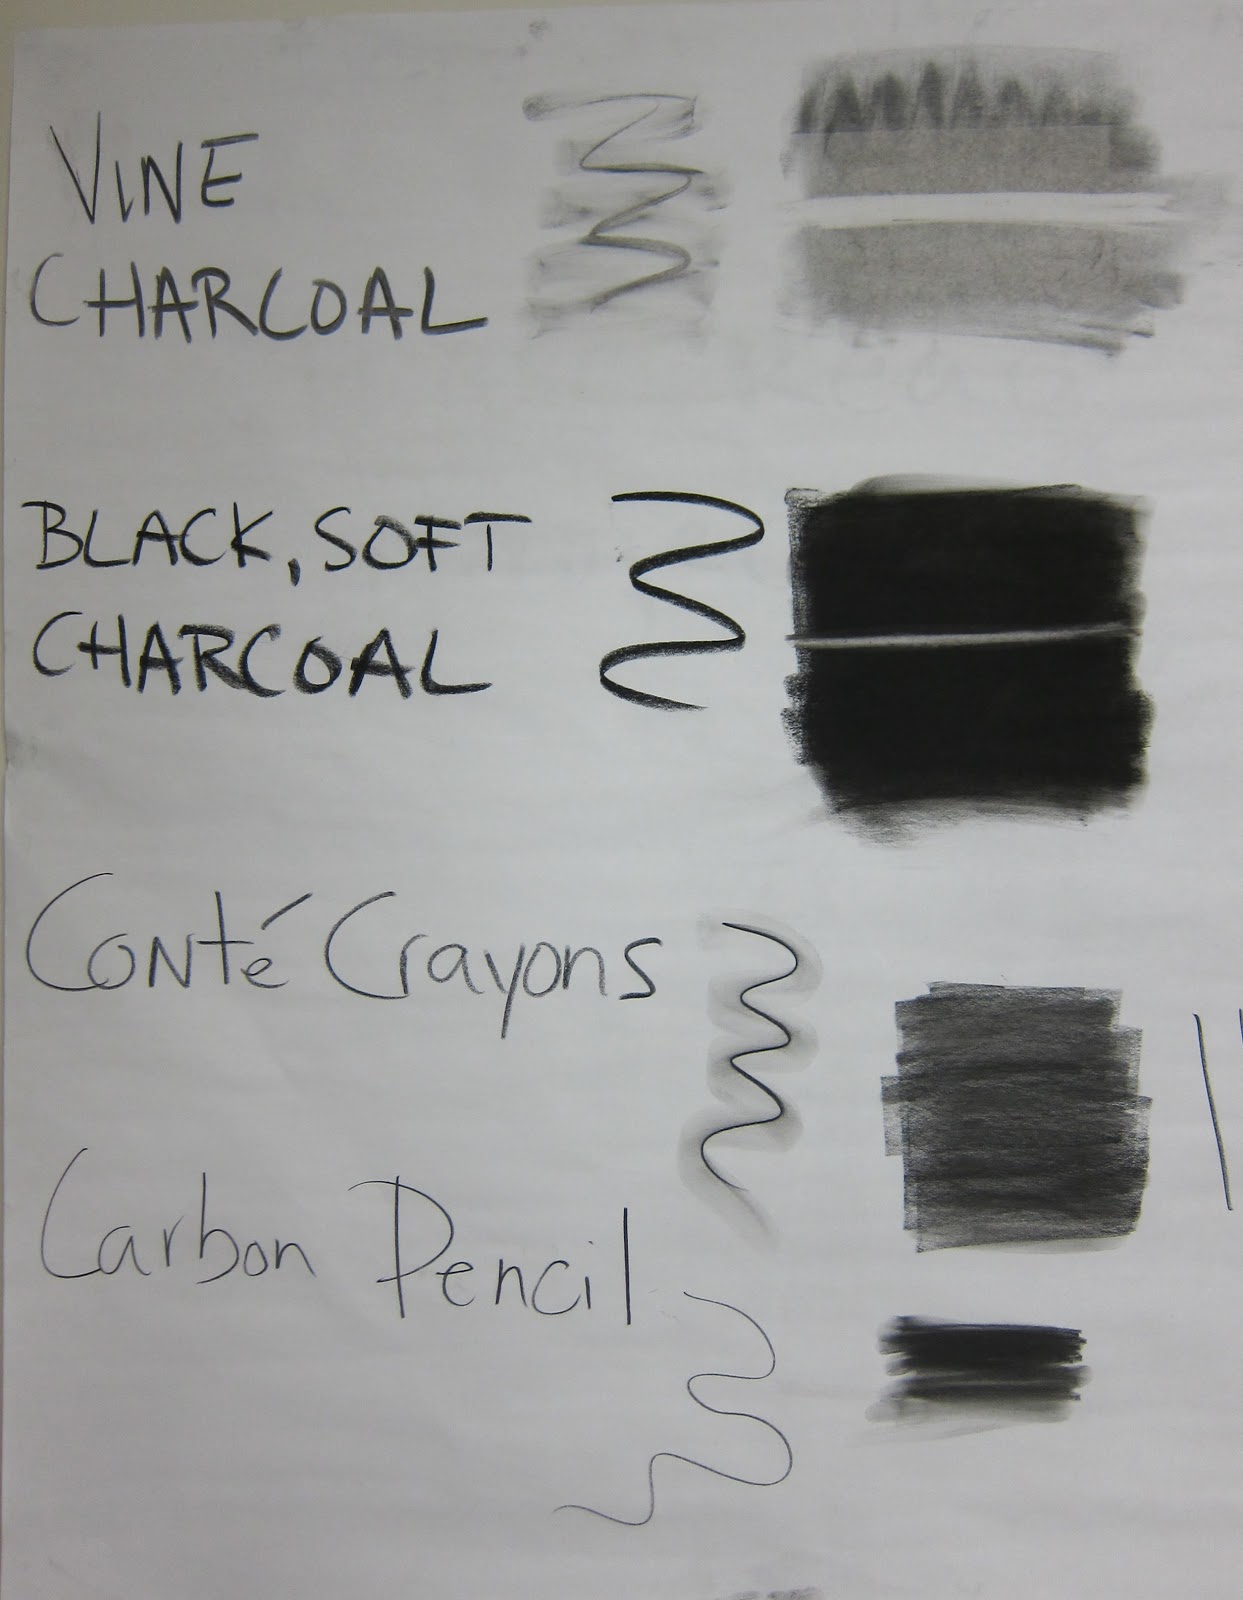 VINE
CHARCOAL
BLACK, SOFT
CHARCOAL
Conté Crayons
Carbon Pencil